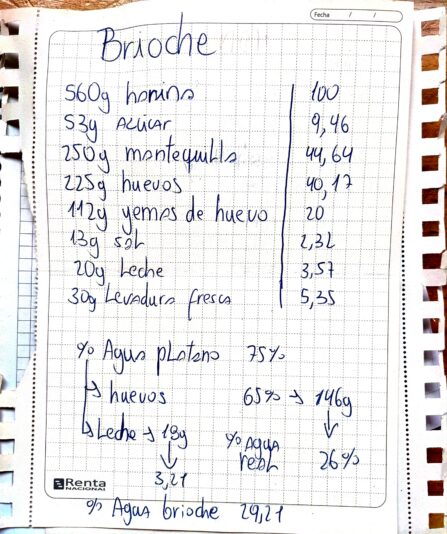 Fecha / /
Brioche
560g harina 100
53g Azúcar 9,46
250g mantequilla 44,64
225g huevos 40,17
112g yemas de huevo 20
13g sal 2,32
20g Leche 3,57
30g Levadura fresca 5,35
% Agua platano 75%
→ huevos 65% → 146g
→ Leche → 18g % Agua real 26%
3,21
Renta
NACIONAL
% Agua brioche 29,21